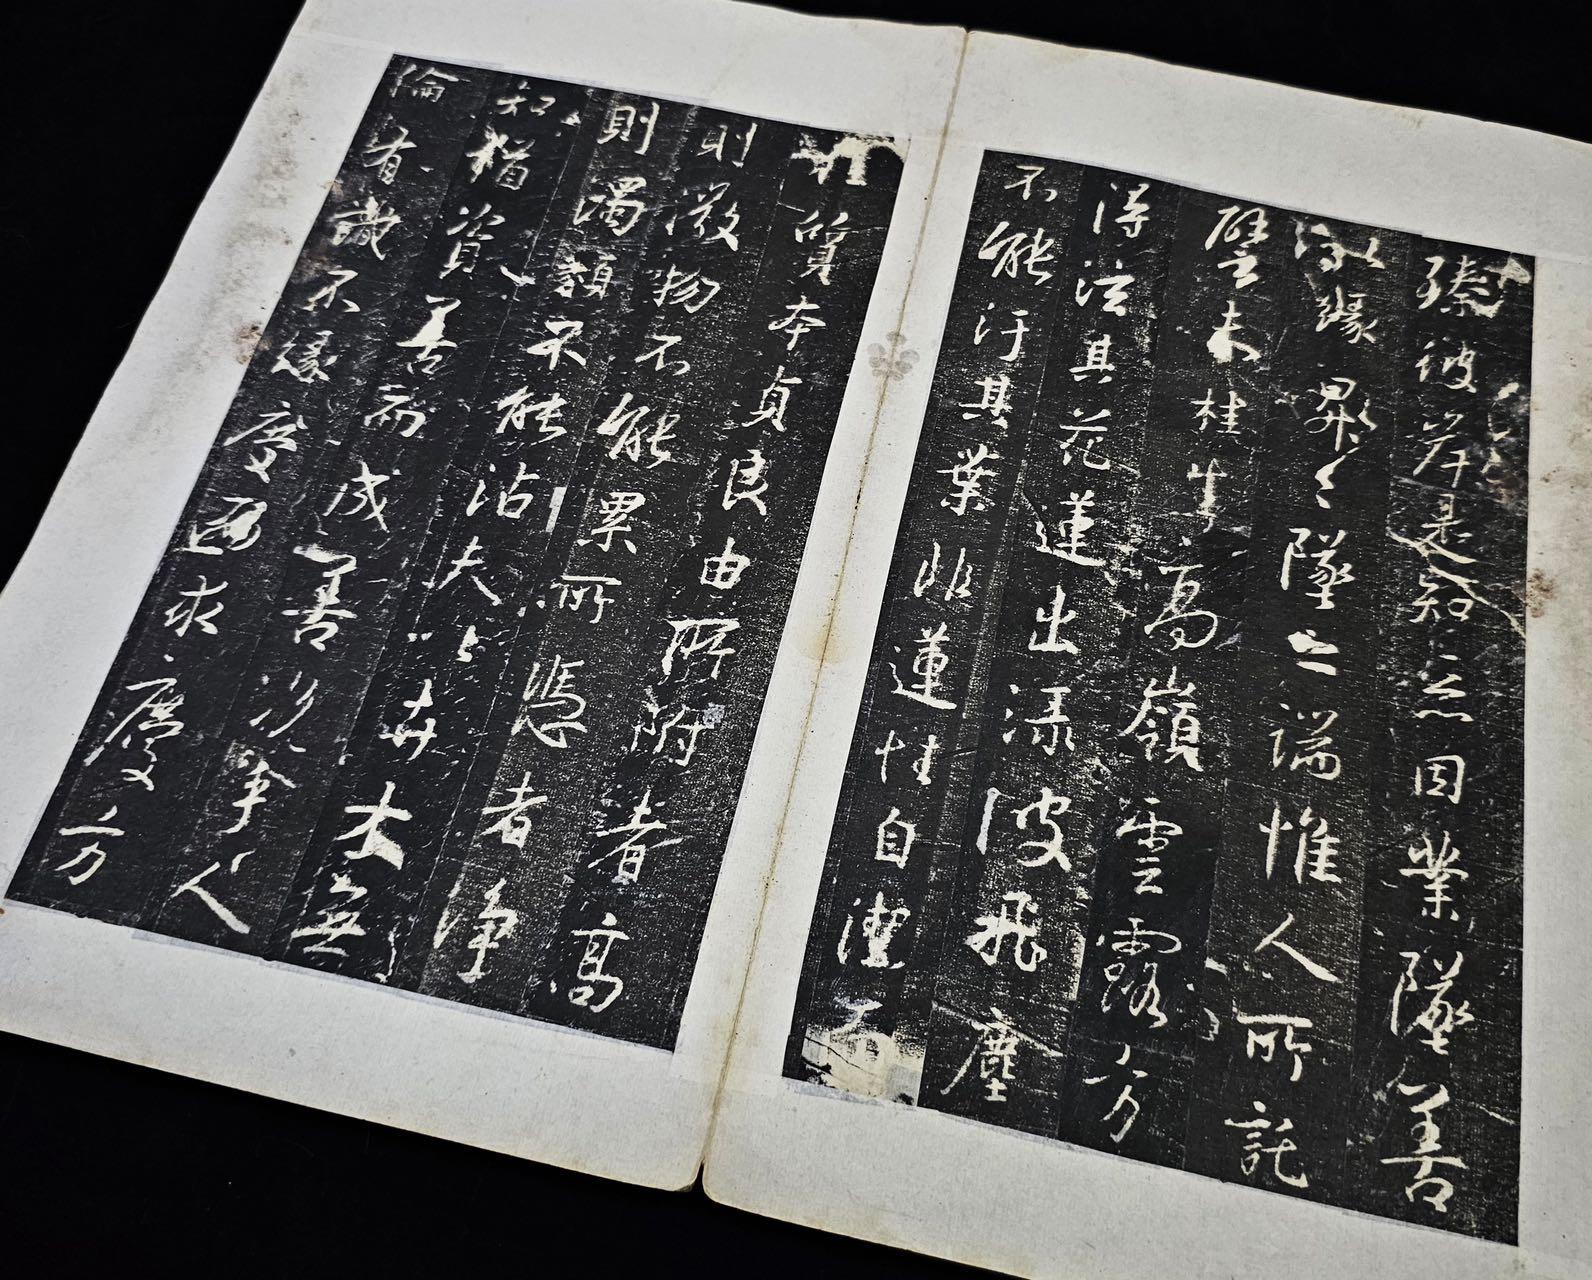 臻彼岸是知惡因業墜善
以緣昇々墜之端惟人所託
譬夫桂生高嶺雲露方
得泫其花蓮出淥波飛塵
不能汙其葉非蓮性自潔而
桂質本貞良由所附者高
則微物不能累所憑者淨
則濁類不能沾夫以卉木無
知猶資善而成善況乎人
倫有識不緣慶而求慶方